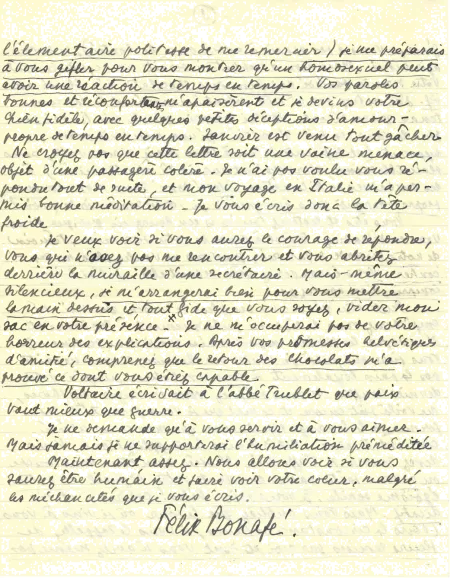 1
l'élémentaire politesse de me remercier) je me préparais
à vous gifler pour vous montrer qu'un homosexuel peut
avoir une réaction de temps en temps. Vos paroles
bonnes et réconfortantes m'apaisèrent et je devins votre
chien fidèle, avec quelques petites déceptions d'amour-
propre de temps en temps. Janvier est venu tout gâcher
Ne croyez pas que cette lettre soit une vaine menace,
objet d'une passagère colère. Je n'ai pas voulu vous ré-
pondre tout de suite, et mon voyage en Italie m'a per-
mis bonne méditation. Je vous écris donc la tête
froide
Je veux voir si vous aurez le courage de répondre,
vous qui n'osez pas me rencontrer et vous abritez
derrière la muraille d'une secrétaire. Mais même
silencieux, je m'arrangerai bien pour vous mettre
la main dessus et tout fide que vous soyez, vider mon
sac en votre présence - x Je ne m'occuperai pas de votre
horreur des explications. Après vos promesses helvétiques
d'amitié, comprenez que le retour des chocolats m'a
prouvé ce dont vous étiez capable
Voltaire écrivait à l'abbé Trublet que paix
vaut mieux que guerre.
Je ne demande qu'à vous servir et à vous aimer.
Mais jamais je ne supporterai l'humiliation préméditée
Maintenant assez. Nous allons voir si vous
saurez être humain et faire voir votre coeur, malgré
les méchancetés que je vous écris.
Félix Bonafé.